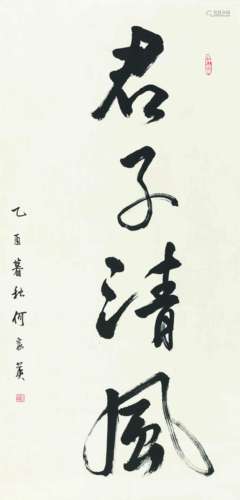 君子清风
乙酉暮秋何家英